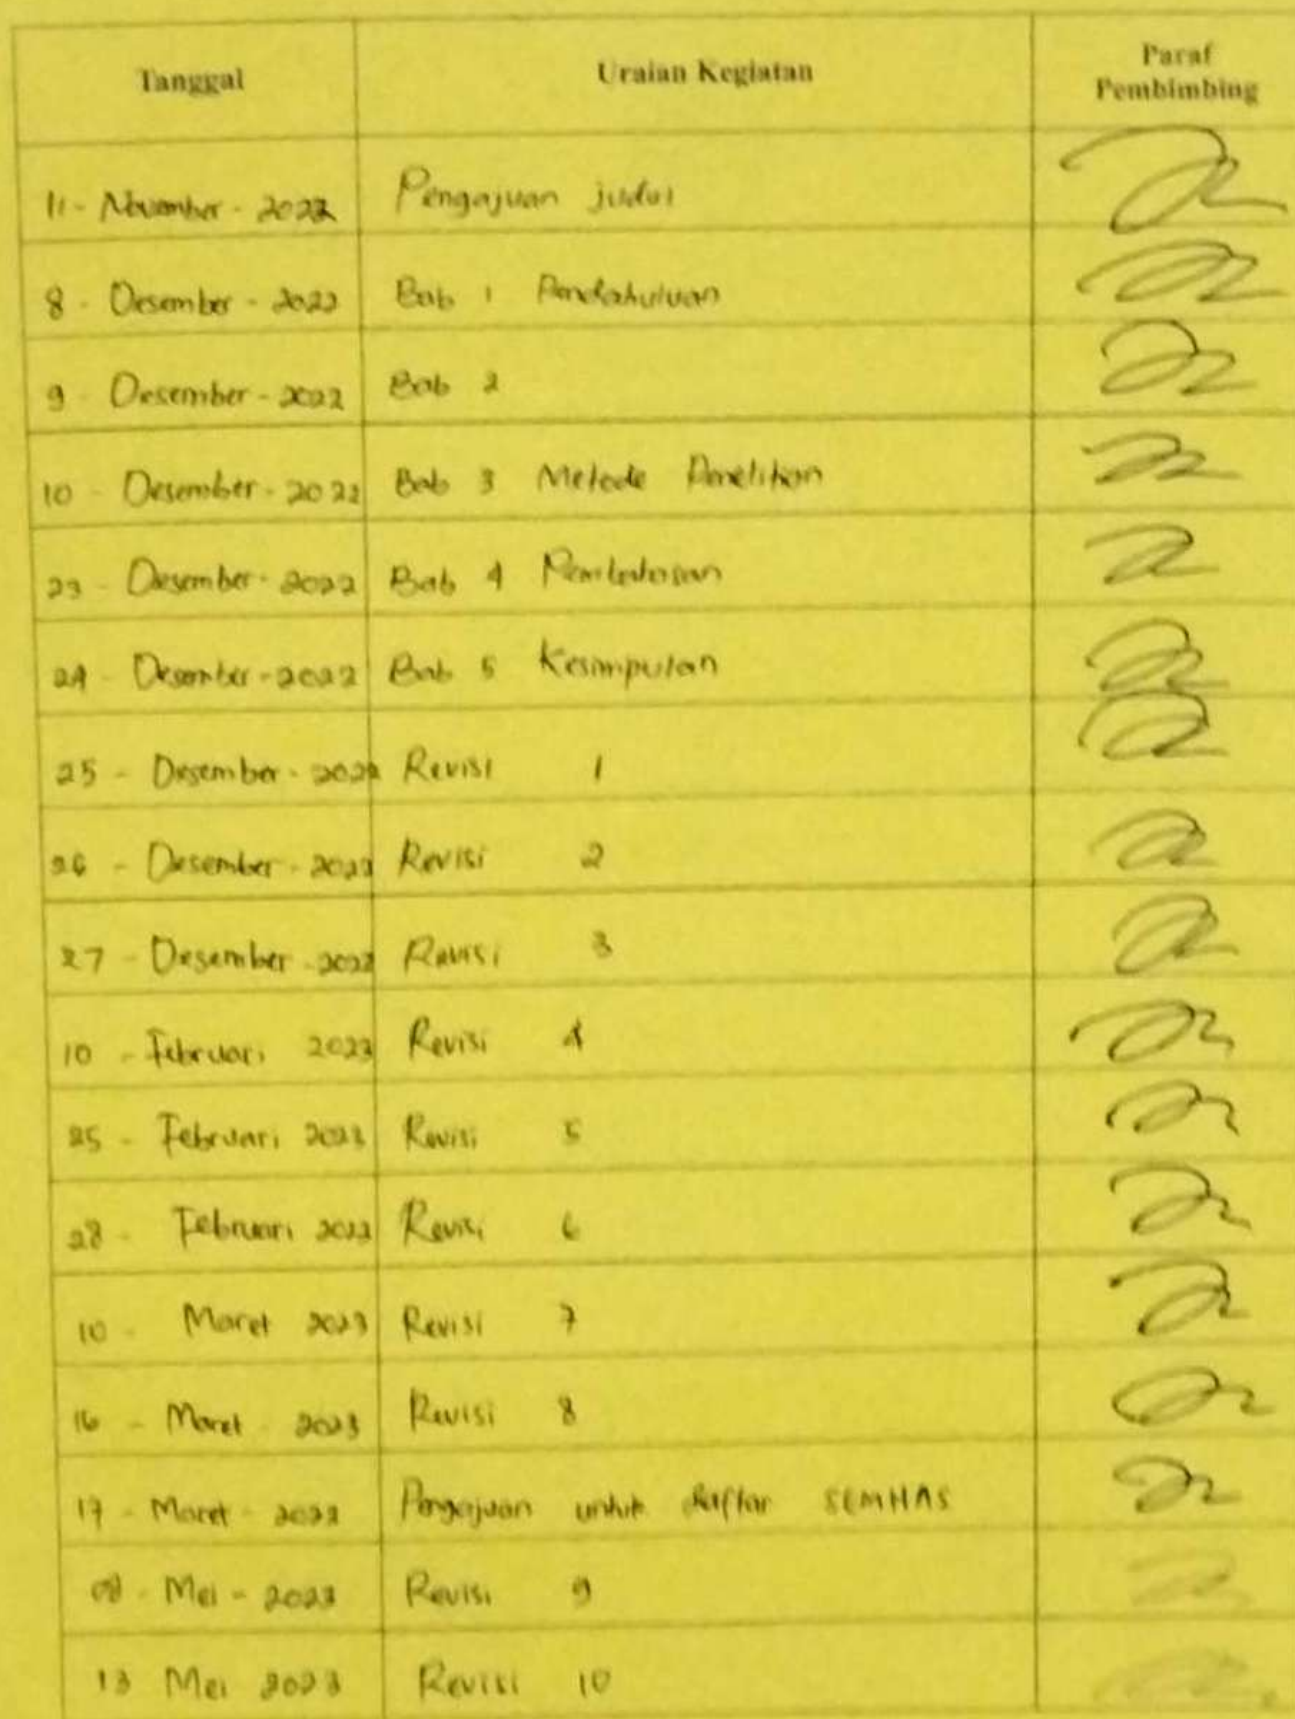 Tanggal Uraian Kegiatan Paraf
Pembimbing
11 - November - 2022 Pengajuan judul
8 - Desember - 2022 Bab 1 Pendahuluan
9 - Desember - 2022 Bab 2
10 - Desember - 2022 Bab 3 Metode Penelitian
23 - Desember - 2022 Bab 4 Pembahasan
24 - Desember - 2022 Bab 5 Kesimpulan
25 - Desember - 2022 Revisi 1
26 - Desember - 2022 Revisi 2
27 - Desember - 2022 Revisi 3
10 - Februari 2023 Revisi 4
25 - Februari 2023 Revisi 5
28 - Februari 2023 Revisi 6
10 - Maret 2023 Revisi 7
16 - Maret - 2023 Revisi 8
17 - Maret - 2023 Pengajuan untuk daftar SEMHAS
08 - Mei - 2023 Revisi 9
13 Mei 2023 Revisi 10